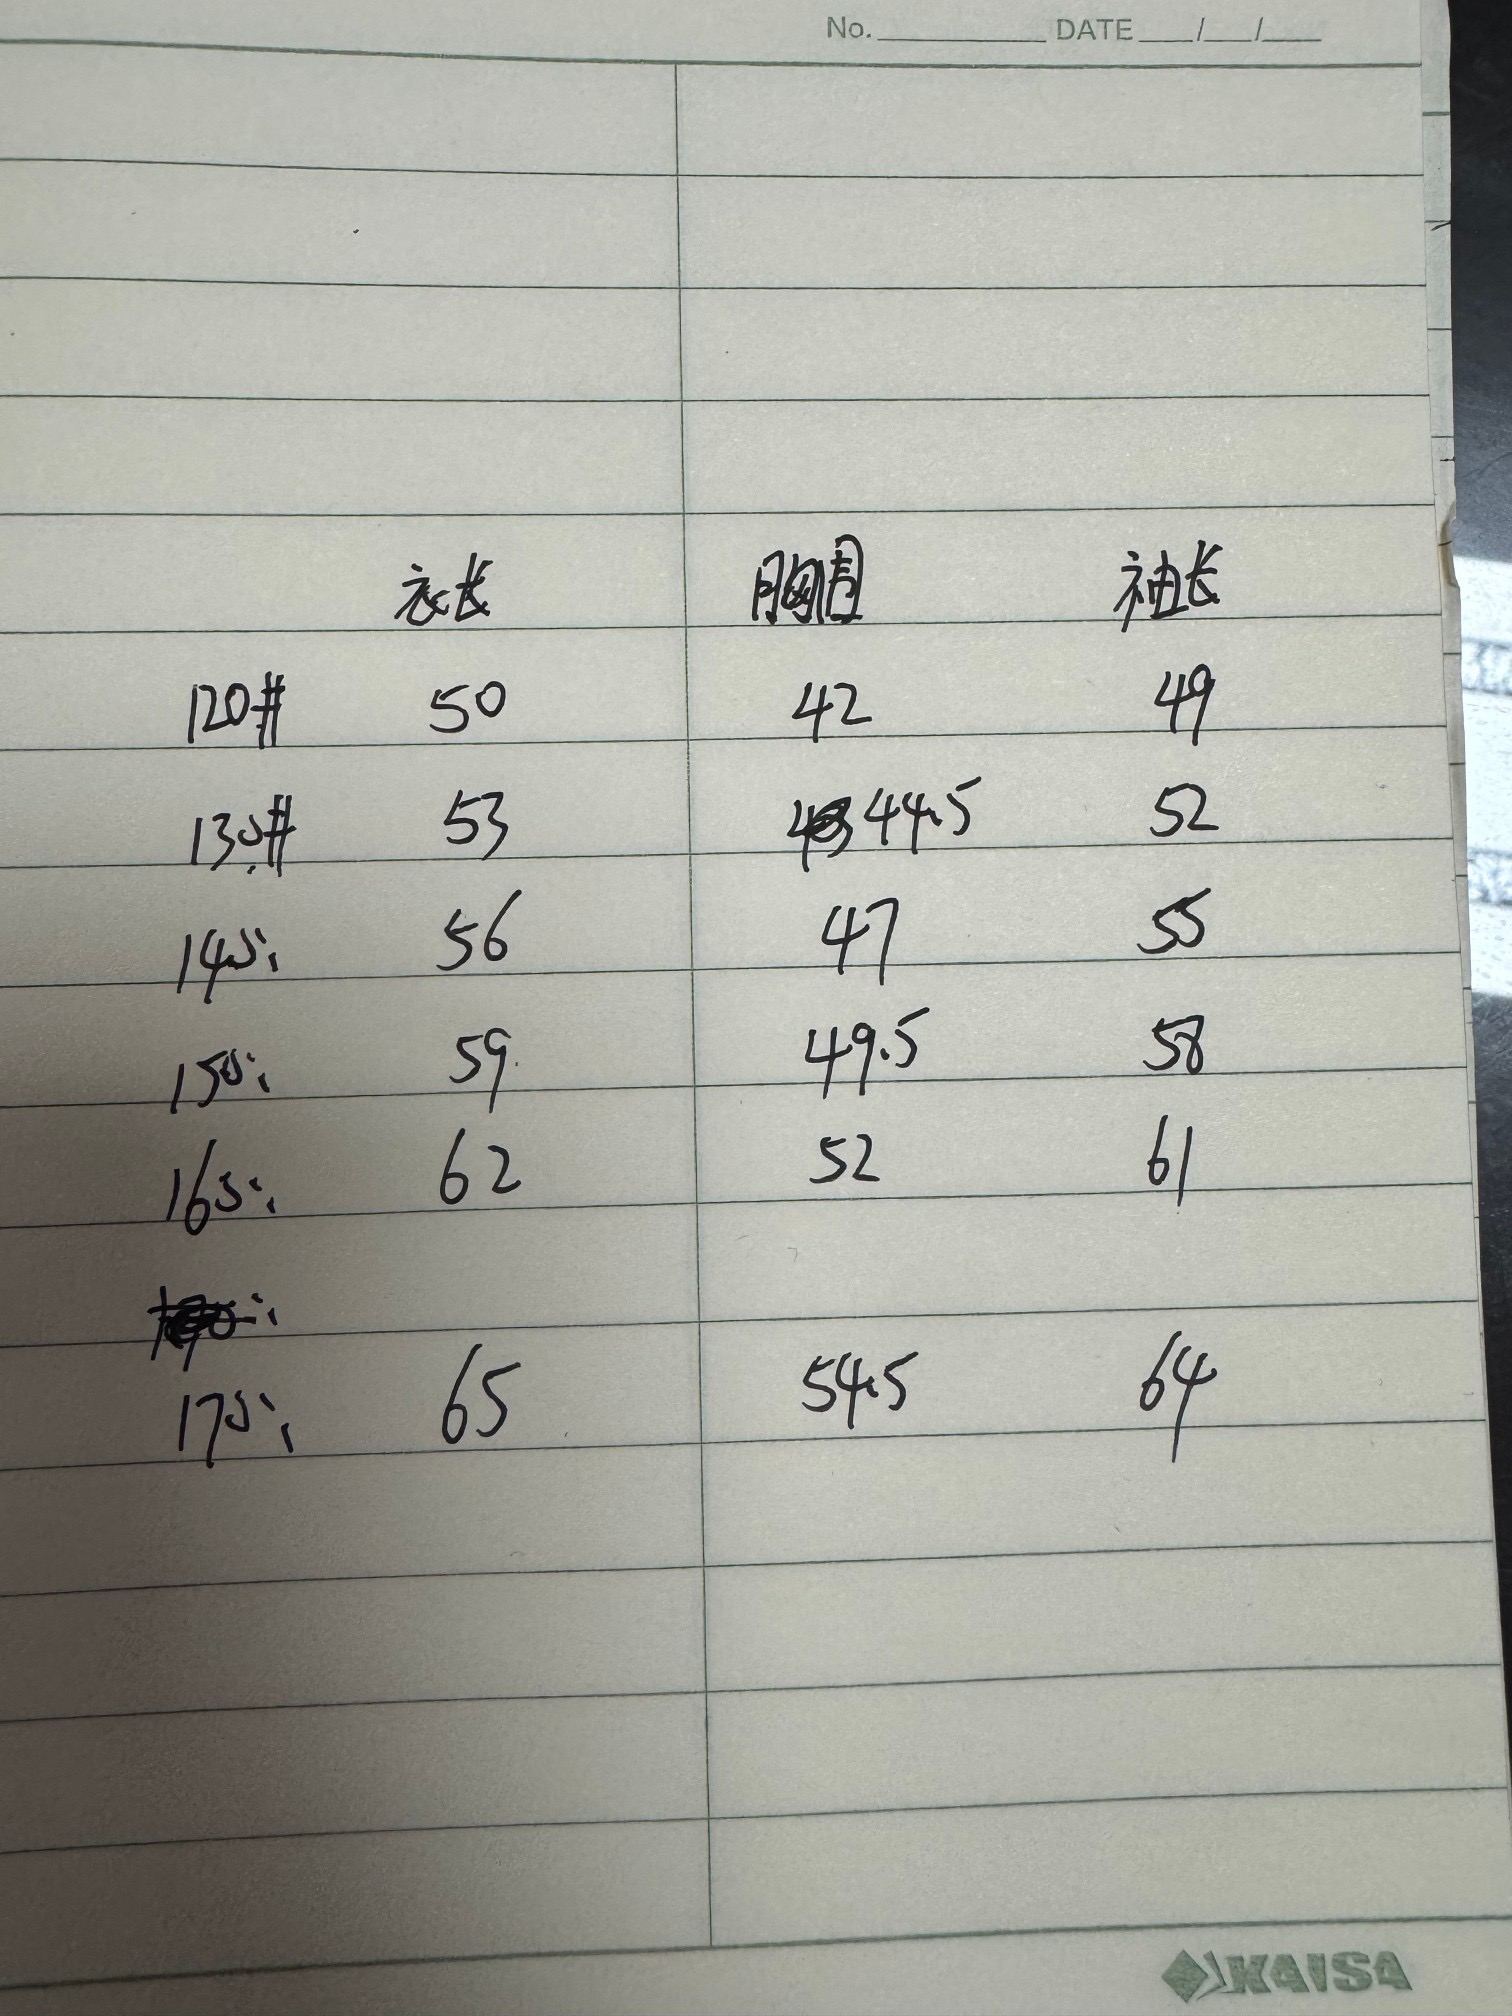 No. DATE / /
衣长 胸围 袖长
120# 50 42 49
130# 53 44.5 52
140 56 47 55
150 59 49.5 58
160 62 52 61
170 65 54.5 64
KAISA